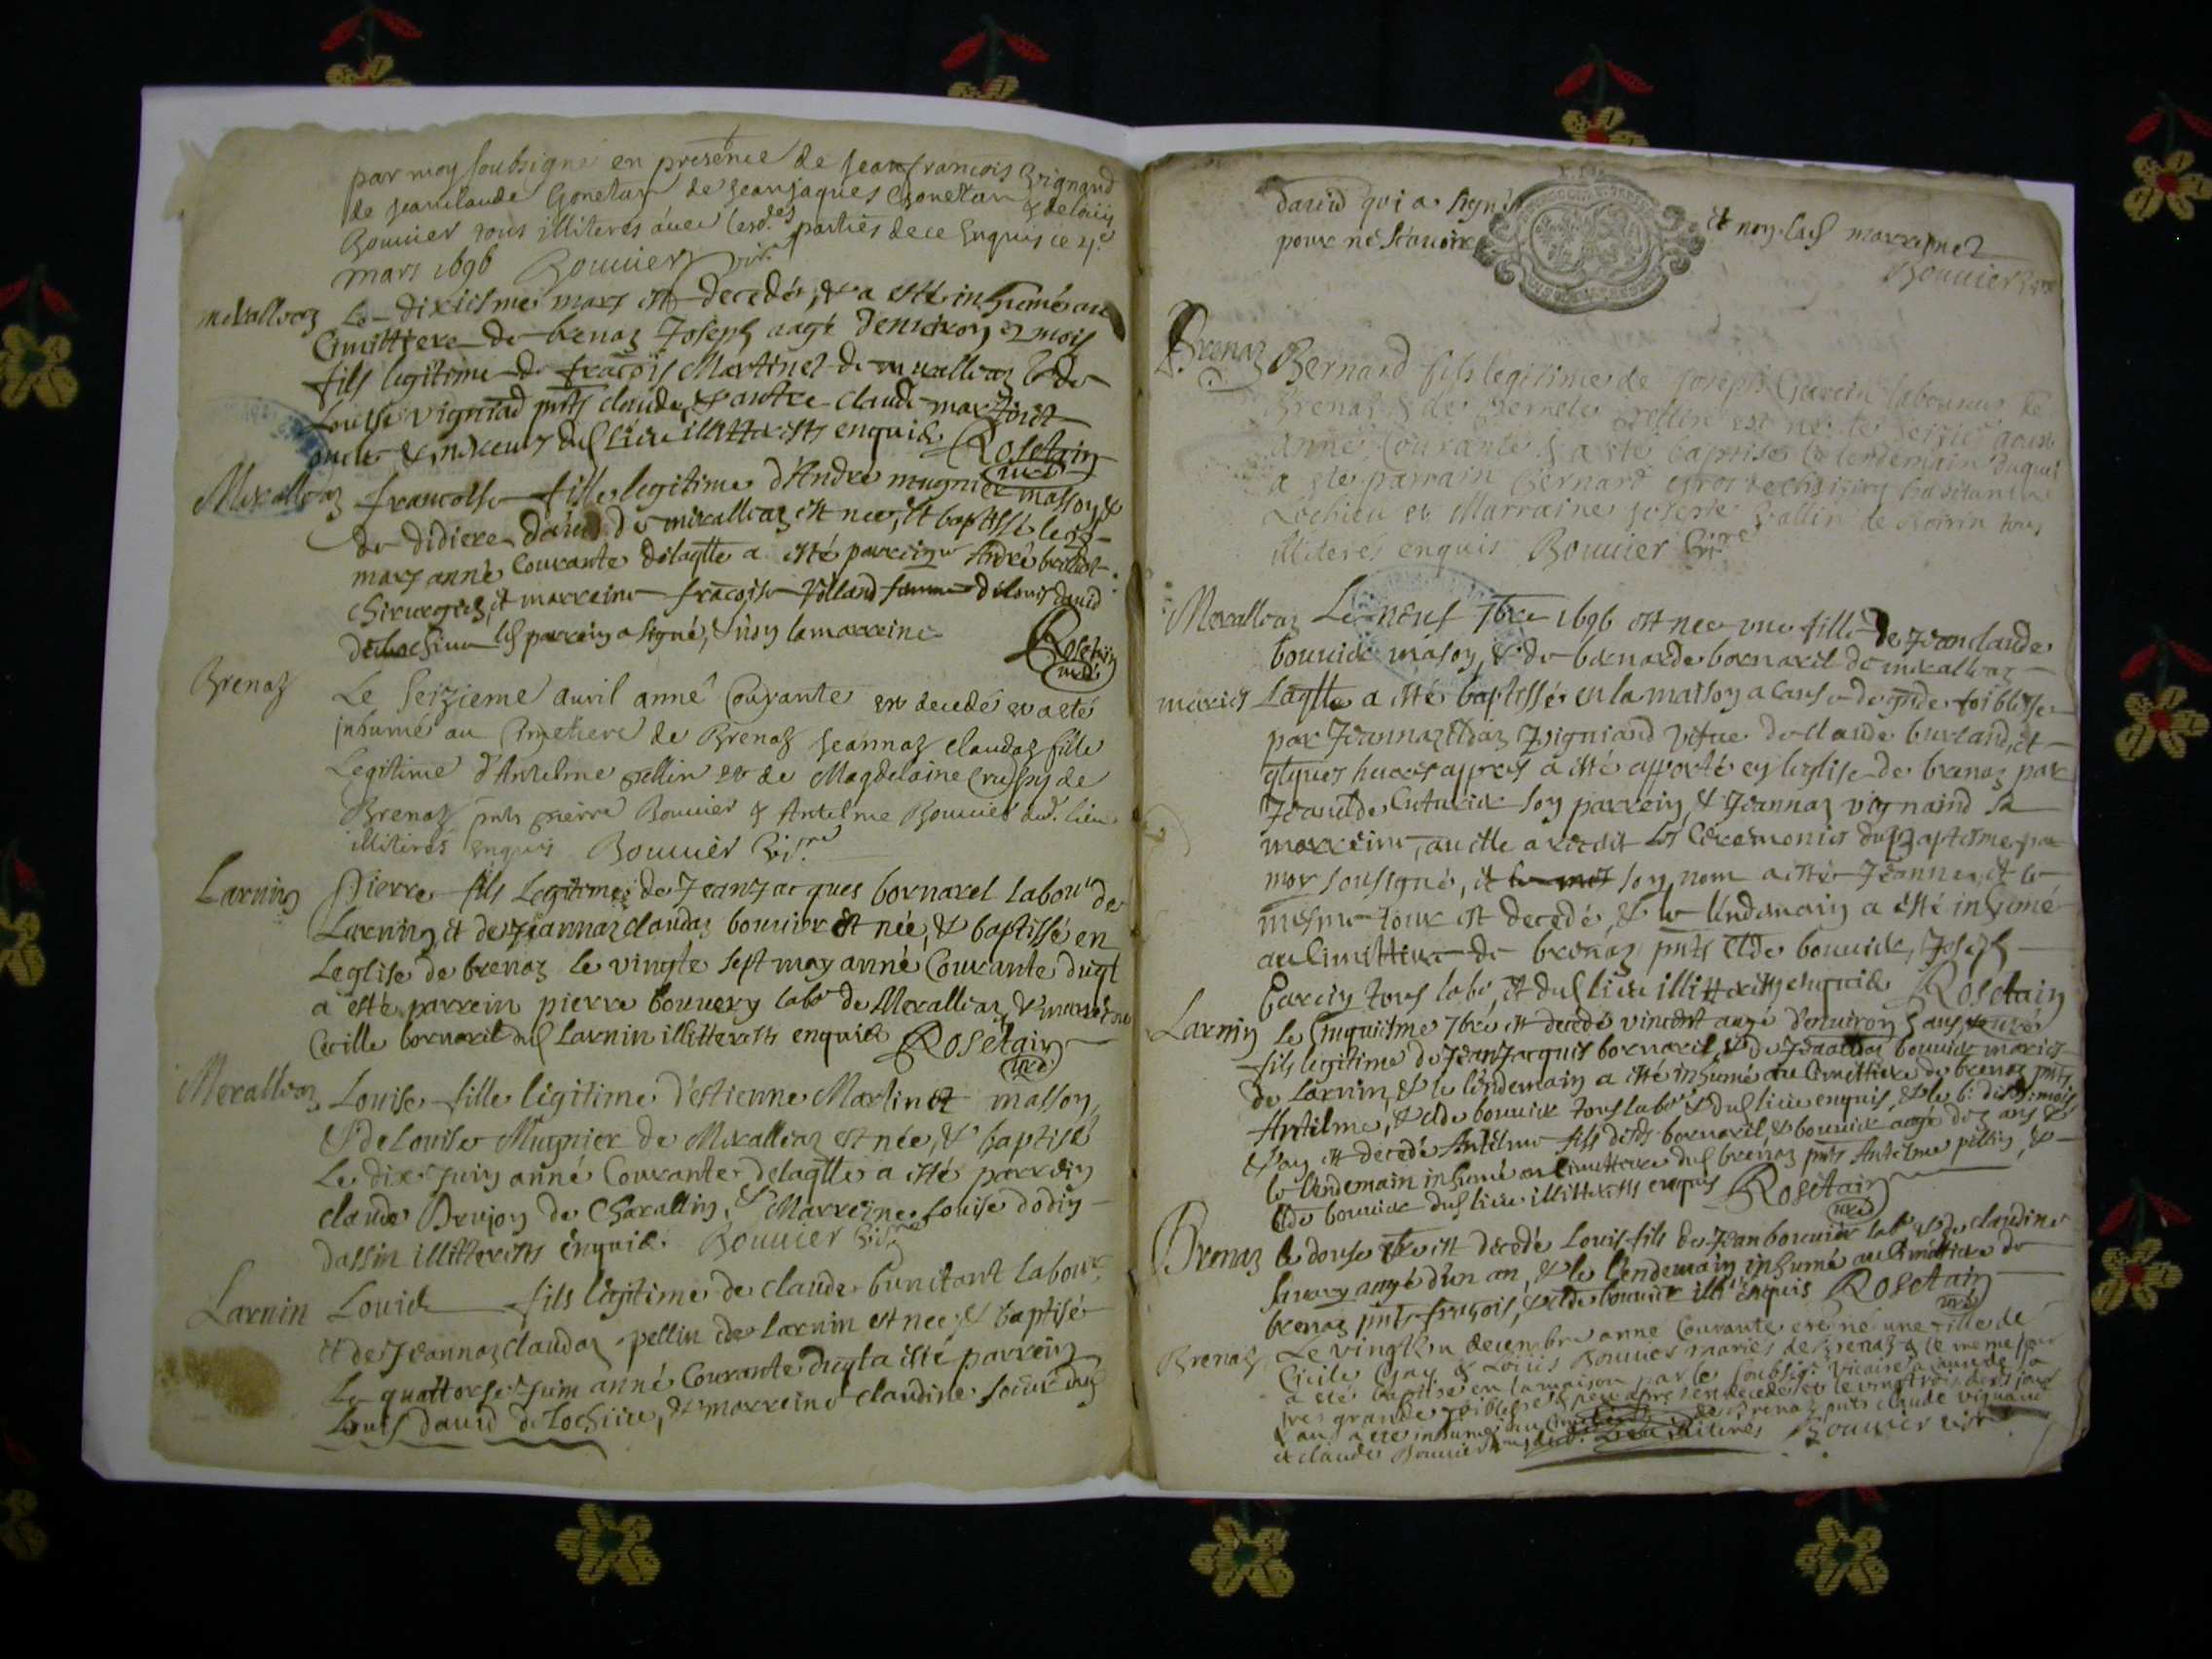 par moy soubsigné en presence de Jean francois Vignand
de Jeanclaude Gonetan de Jeanjaques Gonetan & de Louis
Bouuier tous illiteres auec lesd.es parties de ce enquis ce 4.e
mars 1696 Bouuier vic.re
Meralleaz Le dixiesme mars est decedé, & a esté inhumé au
Cimittiere de brenaz Joseph aagé denuiron 2 mois
fils legitime de fracois Martinet de meralleaz & de
Louise vigniad pnts claude, & autre claude martinet
dud lieu illitterests enquis Rosetain
curé
Meralleaz francoise fille legitime d'André mugnier massoy &
de didiere dauid de miralleaz est nee, et baptissé le
mars anné Courante delaqlle a esté parreine André
chirurgien, et marreine fracoise Volland femme de louis dauid
de lochieu led parrein a signé, & noy la marreine Rosetain
curé
Brenaz Le Seizieme auril anné Courante est decedé et a eté
inhumé au Cimetiere de Brenaz Jeannaz claudaz fille
Legitime d'Antelme pellin et de Magdelaine de
Brenaz pnts pierre Bouuier & Antelme Bouuier dud. lieu
illiterés enquis Bouuier vic.re
Larnin Pierre fils Legitime de Jeanjacques bornarel labour de
Larnin et de Jeannaz claudaz bouuier est née, & baptissé en
Leglise de brenaz le vingte sept may anné Courante duql
a esté parrein pierre bouuery labr de Meralleaz, & marreine
Cecille bornarel dud Larnin illitterests enquis Rosetain
curé
Meralleaz Louise fille ligitime d'estienne Martinet massoy,
& de Louise Mugnier de Miralleaz est née, & baptisé
Le dix Juin anné Courante delaqlle a esté parrein
claude Brujon de Charallin, & Marreine Louise dodin
dassin illitterests enquis. Bouuier vic.re
Larnin Louis fils légitime de claude bunitant labour
et de Jeannaz claudaz pellin de larnin est nee & baptisé
Le quattorse Juin anné Courante duql a esté parrein
Louis dauid de Lochieu, & marreine claudine soeur dud
dauid qui a signé et noy lad marreine
pour ne scauoir Bouuier vic.re
Brenaz Bernard fils legitime de Joseph Garcin laboureur de
Brenaz & de pellin est né le Seizie aoust
anné Courante & a eté baptisé le lendemain duquel
a eté parrain Bernard
Lochieu et Marraine Joseph Vallin de tous
illiterés enquis Bouuier vic.re
Meralleaz Le neuf 7bre 1696 est nee une fille de Jeanclaude
bouuier masoy, & de bernarde bornarel de miralleaz
mariés Laqlle a esté baptissé en la maison a cause de gnde foiblesse
par Jeannaz Claz Vigniand vefue de claude burland, et
qlques heures appres a esté apporté en leglise de brenaz par
Jeanclde Cuturier son parrein, & Jeannaz vignaind sa
marreine, auelle a recdit les Ceremonies du Baptesme par
moy sousigné, et son nom a esté Jeanne, et le
mesme jour est decedé, & le lendemain a esté inhumé
au Cimittiere de brenaz pnts Clde bouuier, Joseph
Garcin tous labr, et dud lieu illitterests enquis Rosetain
Larnin le Cinquiesme 7bre est decedé vincent aagé denuiron 5 ans
fils legitime de Jeanjacques bornarel & de Jeaclaz bouuier mariés
de Larnin, & le lendemain a esté inhumé au Cimittiere de brenaz pnts
Antelme, & clde bouuier tous labr & dud lieu enquis, & le 6: desd: mois
& an est decedé Antelme fils desds bornarel, & bouuier aagé dez ans &
le lendemain inhumé au cimittiere dud brenaz pnts Antelme pellin, &
Clde bouuier dud lieu illitterests enquis Rosetain
curé
Brenaz le douse est decedé Louis fils de Jean bouuier labr & de claudine
Sauary aagé d'un an, & le lendemain inhumé au Cimittiere de
brenaz pnts francois, & clde bouuier illi enquis Rosetain
curé
Brenaz Le vingt decembre anné Courante est né une fille de
Cicile & Louis Bouuier mariés de Brenaz & le meme jour
a eté baptisé en la maison par le Soubsig. Vicaire a cause de sa
tres grande foiblesse & peu apres est decedé et le vingt trois desd jour
& an a eté inhumé au Cimetiere de Brenaz pnts claude vignand
et claude Bouuier dud. Lieu illiterés Bouuier vic.re